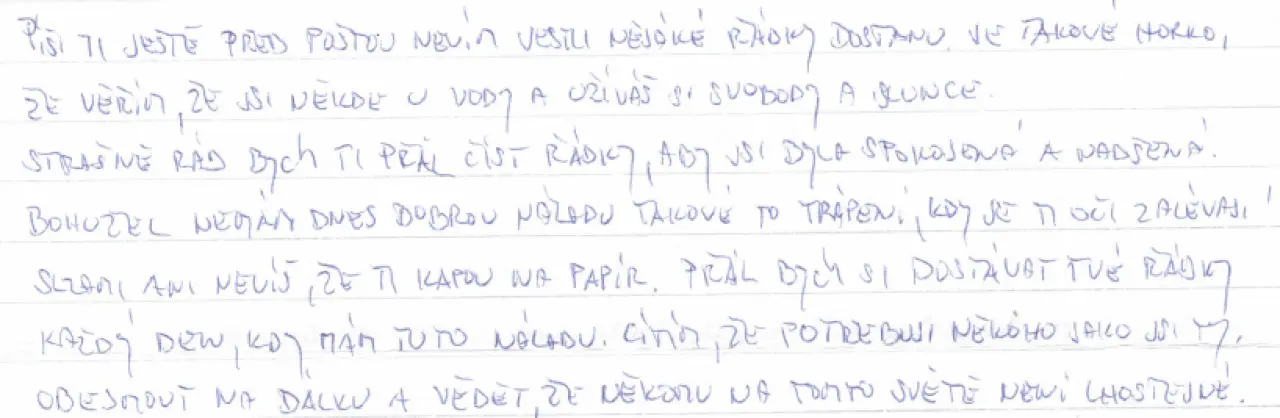 Píši ti ještě před poštou nevím jestli nějaké řádky dostanu. Je takové horko,
že věřím, že jsi někde u vody a užíváš si svobody a slunce.
Strašně rád bych ti přál číst řádky, aby jsi byla spokojená a nadšená.
Bohužel nemám dnes dobrou náladu takové to trápení, kdy se ti oči zalévají
slzami ani nevíš, že ti kapou na papír. Přál bych si dostávat tvé řádky
každý den, kdy mám tuto náladu. Cítím, že potřebuji někoho jako jsi ty,
obejmout na dálku a vědět, že někomu na tomto světě není lhostejné.